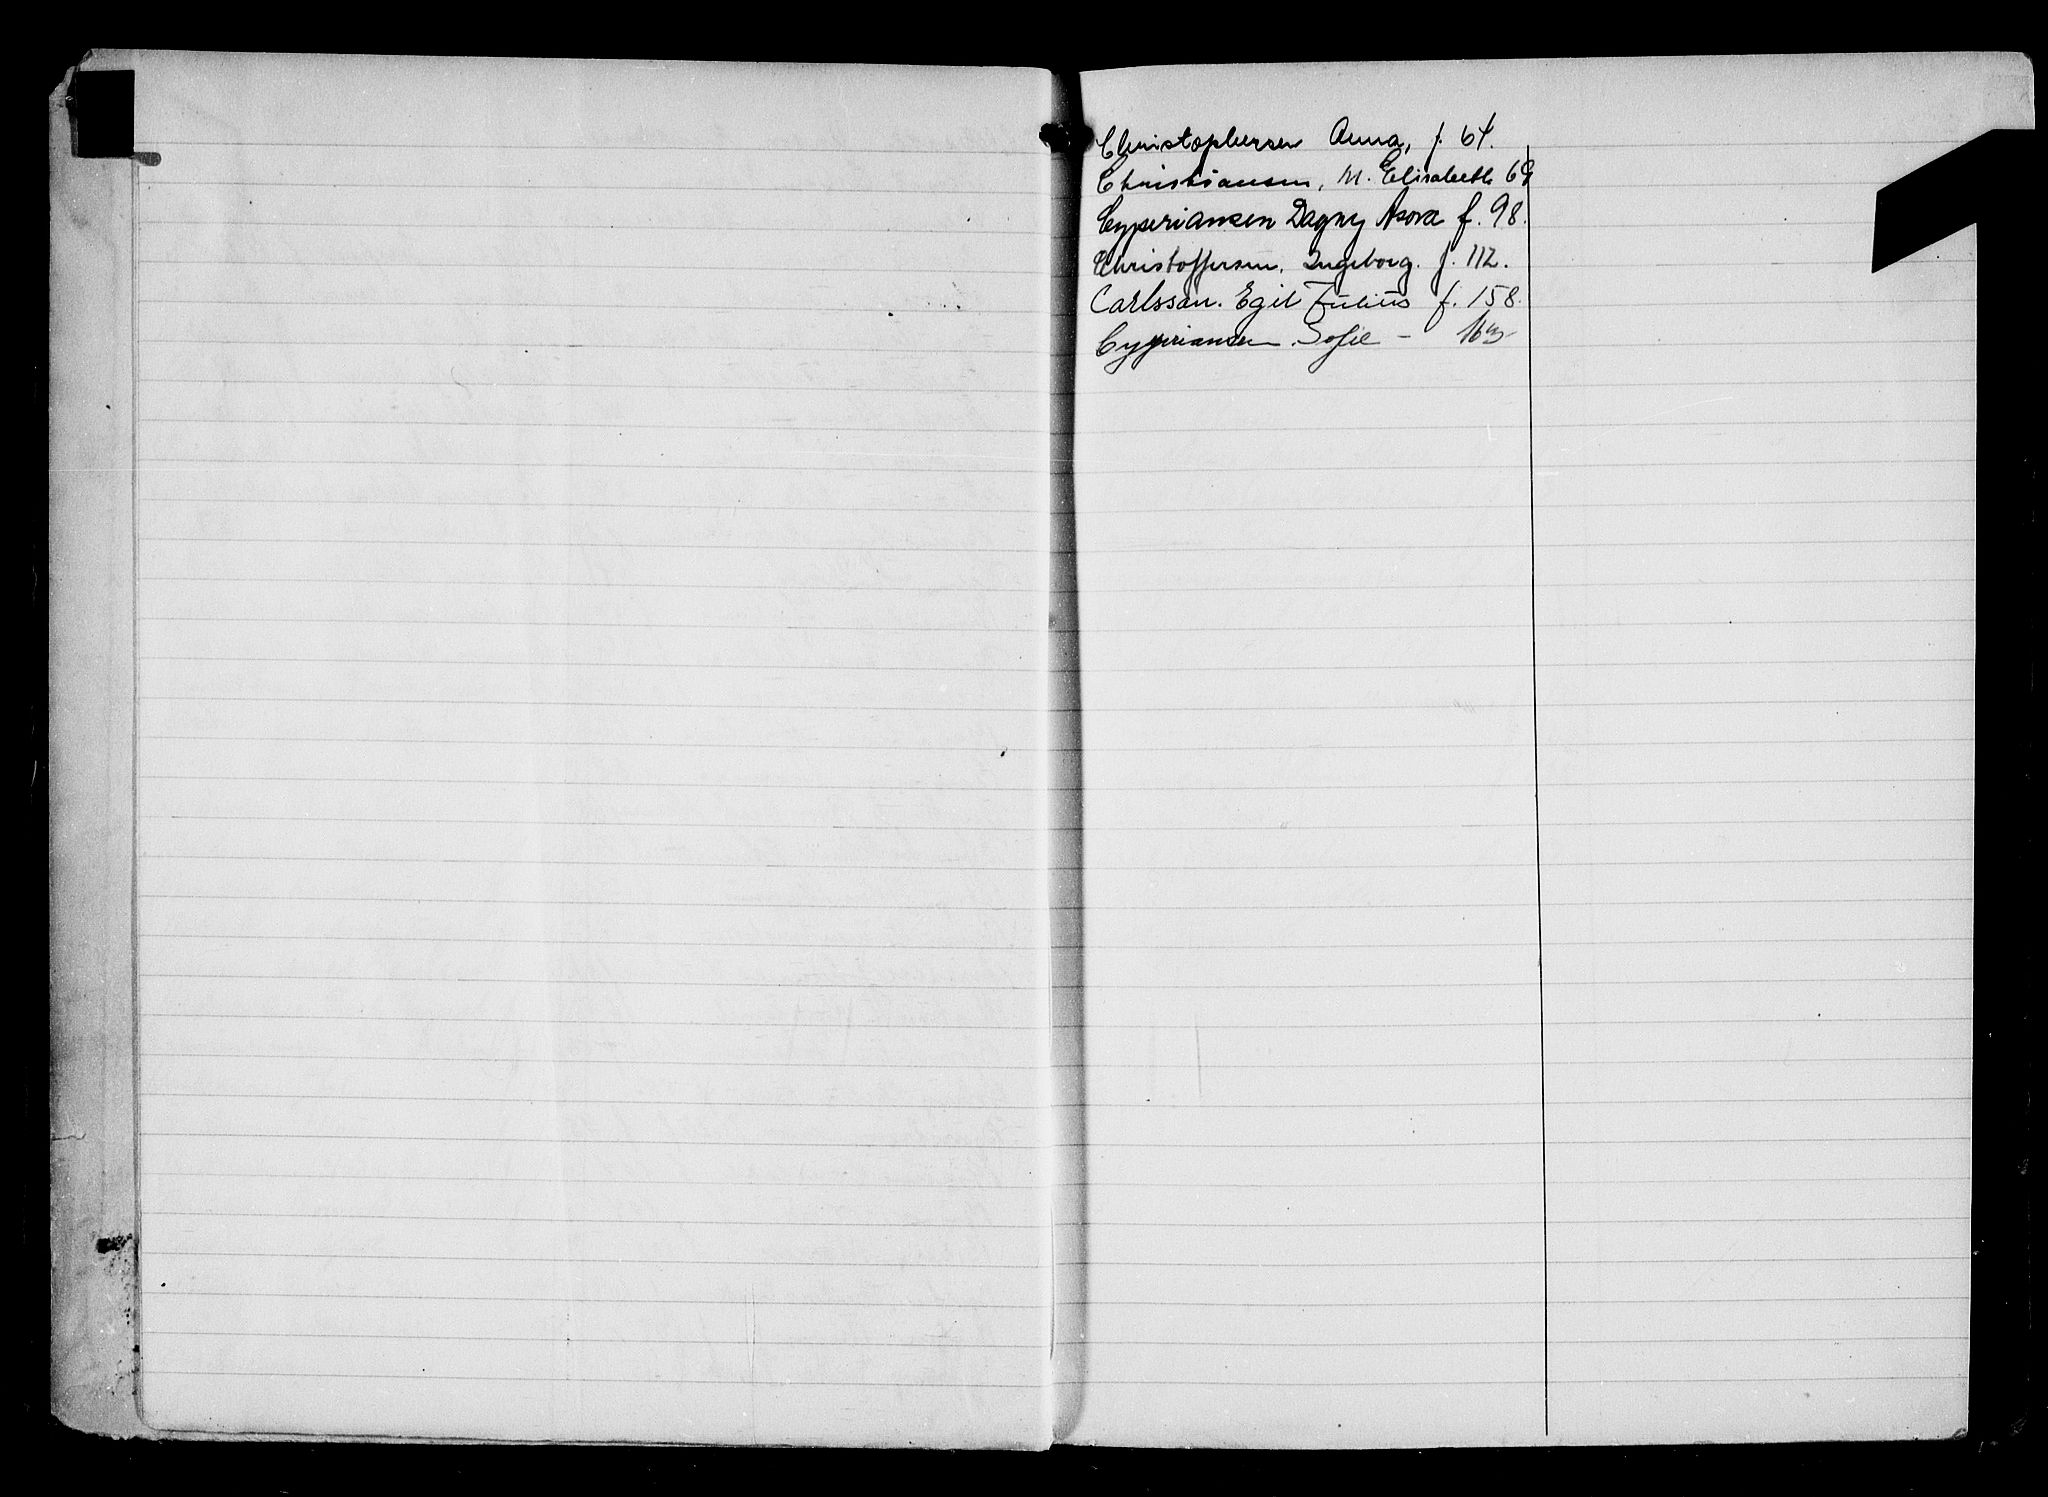 Christophersen Anna, f. 64.
Christiansen, M. Elisabeth 69
Cyperiansen Dagny Asora f. 98.
Christoffersen, Ingeborg. f. 112.
Carlssan. Egil Julius f. 158.
Cypriansen. Sofie -